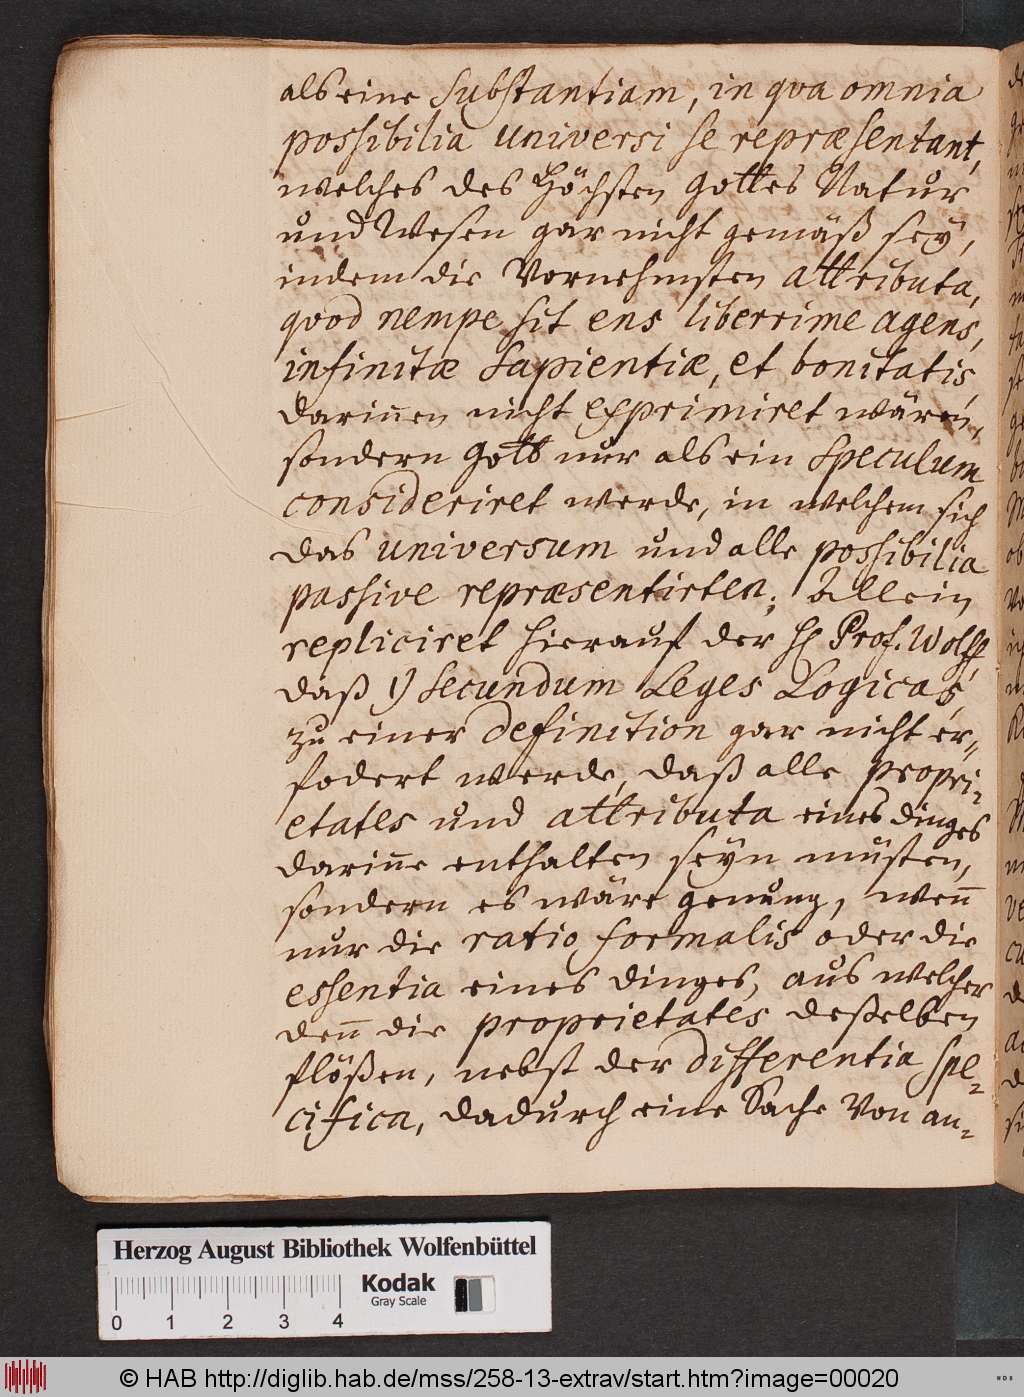 als eine Substantiam, in qva omnia
possibilia universi se repræsentant,
welches des Höchsten Gottes Natur
und Wesen gar nicht gemäß seÿ,
indem die Vornehmsten attributa,
qvod nempe sit ens liberrime agens,
infinitæ Sapientiæ, et bonitatis
darin̅en nicht exprimiret wären,
sondern Gott nur als ein Speculum
consideriret werde, in welchem sich
das universum und alle possibilia
passive repræsentirten; Allein
repliciret hierauf der H Prof. Wolff,
daß 1) Secundum Leges Logicas,
zu einer definition gar nicht er„
fodert werde, daß alle propri„
etates und attributa eines dinges
darin̅e enthalten seÿn müsten,
sondern es wäre genung, wen̅
nur die ratio formalis oder die
essentia eines dinges, aus welcher
den̅ die proprietates deßelben
flößen, nebst der differentia spe„
cifica, dadurch eine Sache Von an„
Herzog August Bibliothek Wolfenbüttel
Kodak
Gray Scale
0 1 2 3 4
© HAB http://diglib.hab.de/mss/258-13-extrav/start.htm?image=00020